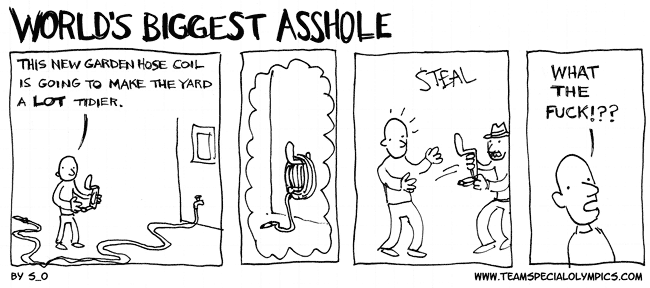 WORLD'S BIGGEST ASSHOLE
THIS NEW GARDEN HOSE COIL
IS GOING TO MAKE THE YARD
A LOT TIDIER.
STEAL
WHAT
THE
FUCK!??
BY S_O
WWW.TEAMSPECIALOLYMPICS.COM